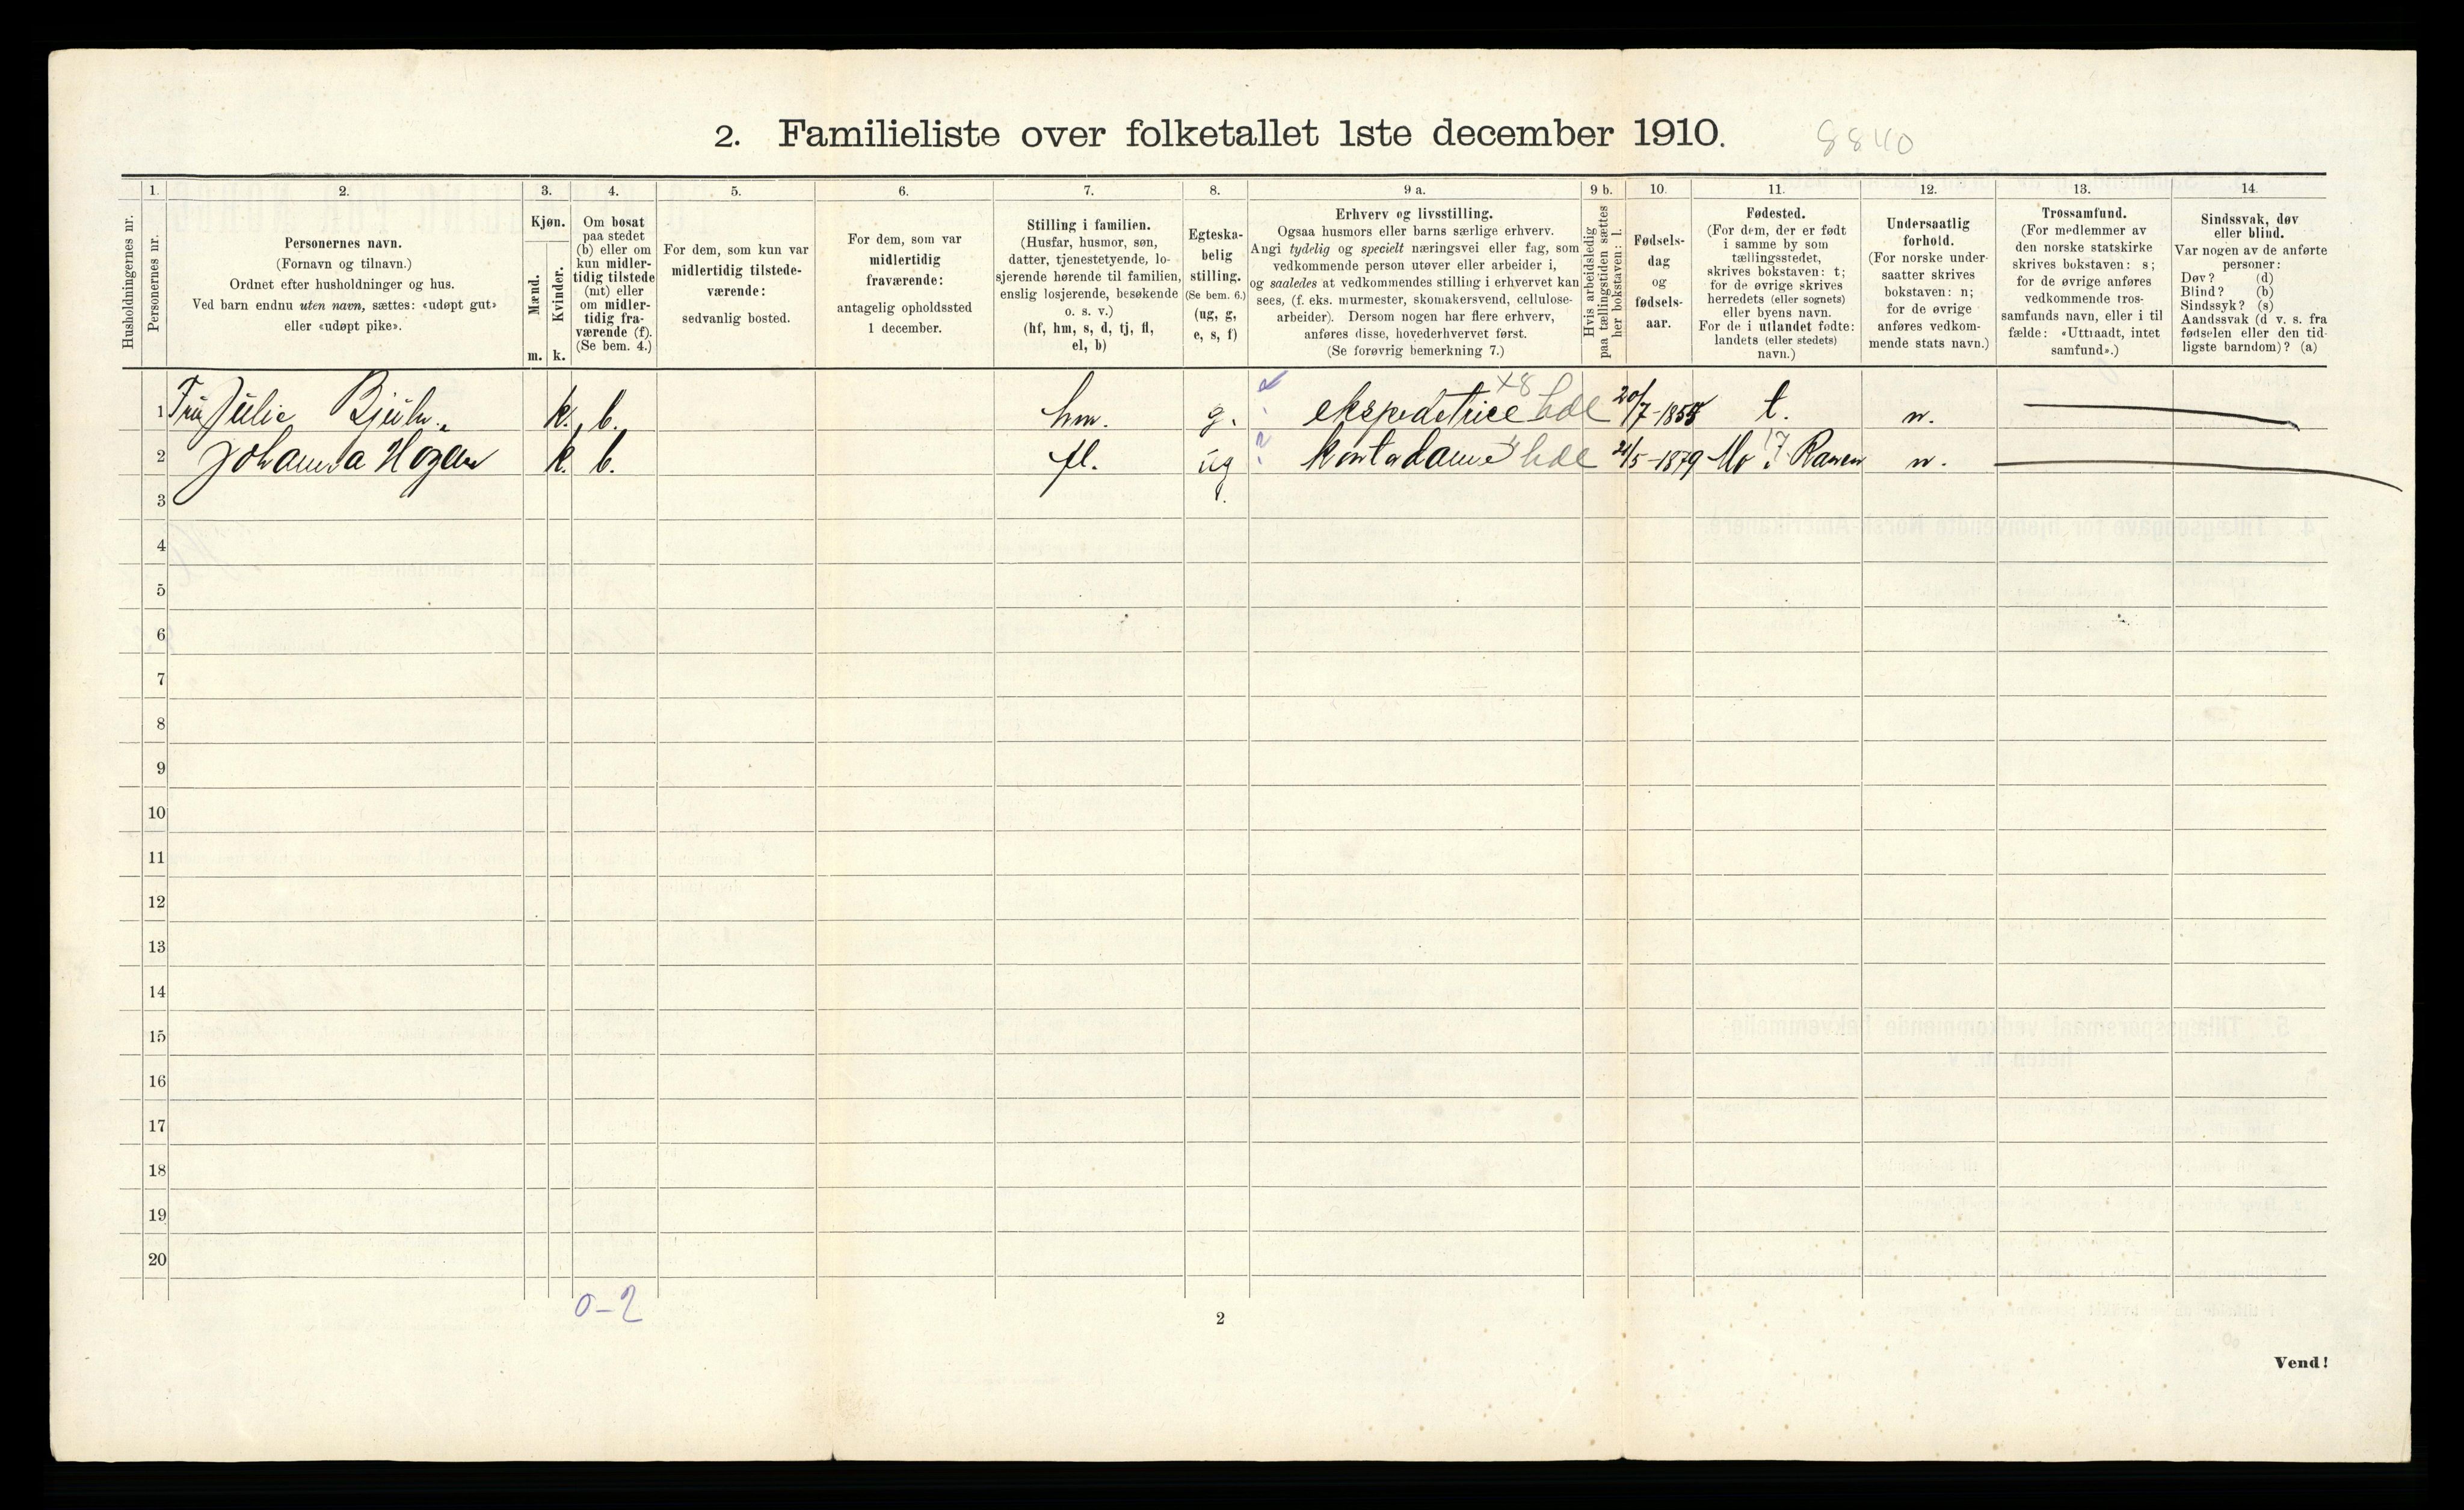 2. Familieliste over folketallet 1ste december 1910.
8840
Husholdningernes nr.
1.
Personernes nr.
2.
Personernes navn.
(Fornavn og tilnavn.)
Ordnet efter husholdninger og hus.
Ved barn endnu uten navn, sættes: «udøpt gut»
eller «udøpt pike».
3.
Kjøn.
Mænd.
Kvinder.
m. k.
4.
Om bosat
paa stedet
(b) eller om
kun midler-
tidig tilstede
(mt) eller
om midler-
tidig fra-
værende (f).
(Se bem. 4.)
5.
For dem, som kun var
midlertidig tilstede-
værende:
sedvanlig bosted.
6.
For dem, som var
midlertidig
fraværende:
antagelig opholdssted
1 december.
7.
Stilling i familien.
(Husfar, husmor, søn,
datter, tjenestetyende, lo-
sjerende hørende til familien,
enslig losjerende, besøkende
o. s. v.)
(hf, hm, s, d, tj, fl,
el, b)
8.
Egteska-
belig
stilling.
(Se bem. 6.)
(ug, g,
e, s, f)
9 a.
Erhverv og livsstilling.
Ogsaa husmors eller barns særlige erhverv.
Angi tydelig og specielt næringsvei eller fag, som
vedkommende person utøver eller arbeider i,
og saaledes at vedkommendes stilling i erhvervet kan
sees, (f. eks. murmester, skomakersvend, cellulose-
arbeider). Dersom nogen har flere erhverv,
anføres disse, hovederhvervet først.
(Se forøvrig bemerkning 7.)
9 b.
Hvis arbeidsledig
paa tællingstiden sættes
her bokstaven: l.
10.
Fødsels-
dag
og
fødsels-
aar.
11.
Fødested.
(For dem, der er født
i samme by som
tællingsstedet,
skrives bokstaven: t;
for de øvrige skrives
herredets (eller sognets)
eller byens navn.
For de i utlandet fødte:
landets (eller stedets)
navn.)
12.
Undersaatlig
forhold.
(For norske under-
saatter skrives
bokstaven: n;
for de øvrige
anføres vedkom-
mende stats navn.)
13.
Trossamfund.
(For medlemmer av
den norske statskirke
skrives bokstaven: s;
for de øvrige anføres
vedkommende tros-
samfunds navn, eller i til
fælde: «Uttraadt, intet
samfund».)
14.
Sindssvak, døv
eller blind.
Var nogen av de anførte
personer:
Døv? (d)
Blind? (b)
Sindssyk? (s)
Aandssvak (d v. s. fra
fødselen eller den tid-
ligste barndom)? (a)
1 Frü Jülie k. b. hm. g. ekspedetrice X8 hdl 20/7-1855 t. n.
2 Johanna Hogan k. b. fl. üg. kontordame hdl /5-1879 Mo i Ranen n.
3
4
5
6
7
8
9
10
11
12
13
14
15
16
17
18
19
20
0-2
2
Vend!